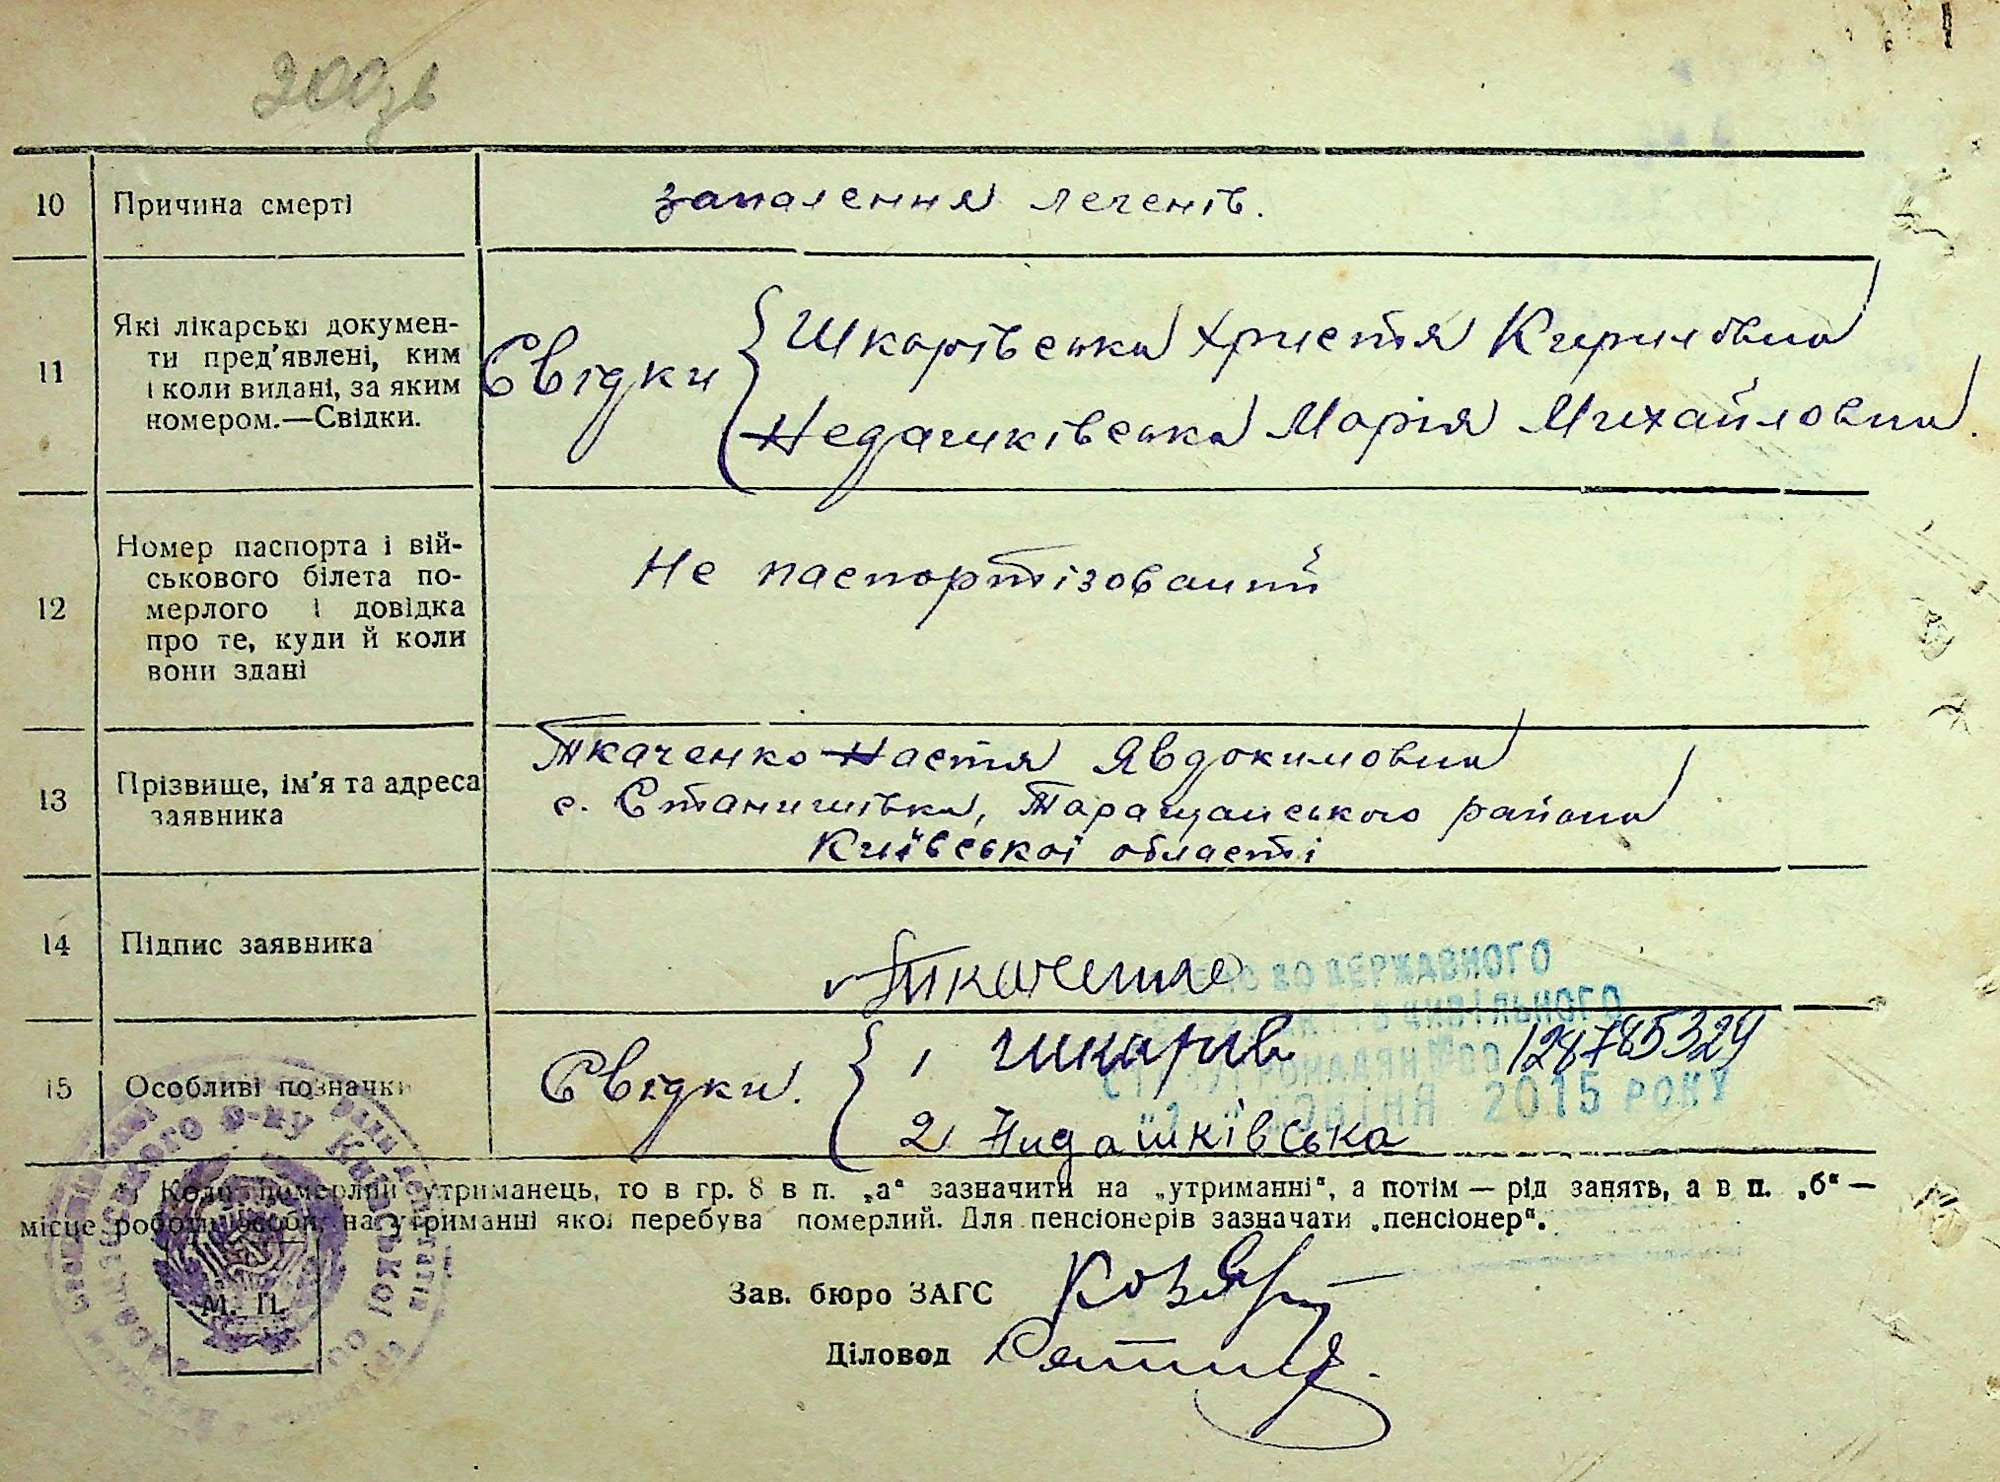 200зв
10 Причина смерті запалення легенів.
11 Які лікарські докумен-
ти пред'явлені, ким
і коли видані, за яким
номером.—Свідки.
Свідки
Шкарівська Христя Кирилівна
Недашківська Марія Михайловна.
12 Номер паспорта і вій-
ськового білета по-
мерлого і довідка
про те, куди й коли
вони здані
Не паспортізований
13 Прізвище, ім'я та адреса
заявника
Ткаченко Настя Явдокимовна
с. Станишівка, Таращанського району
Київської області
14 Підпис заявника Ткаченко
ДО ДЕРЖАВНОГО
ЦИВІЛЬНОГО
ГРОМАДЯН № 00128785329
2015 РОКУ
15 Особливі позначки
Свідки.
1 шкарив
2 Нидашківська
Коли померлий утриманець, то в гр. 8 в п. „а“ зазначити на „утриманні“, а потім — рід занять, а в п. „б“ —
місце роботи особи, на утриманні якої перебува померлий. Для пенсіонерів зазначати „пенсіонер“.
Зав. бюро ЗАГС
Діловод
М. П.